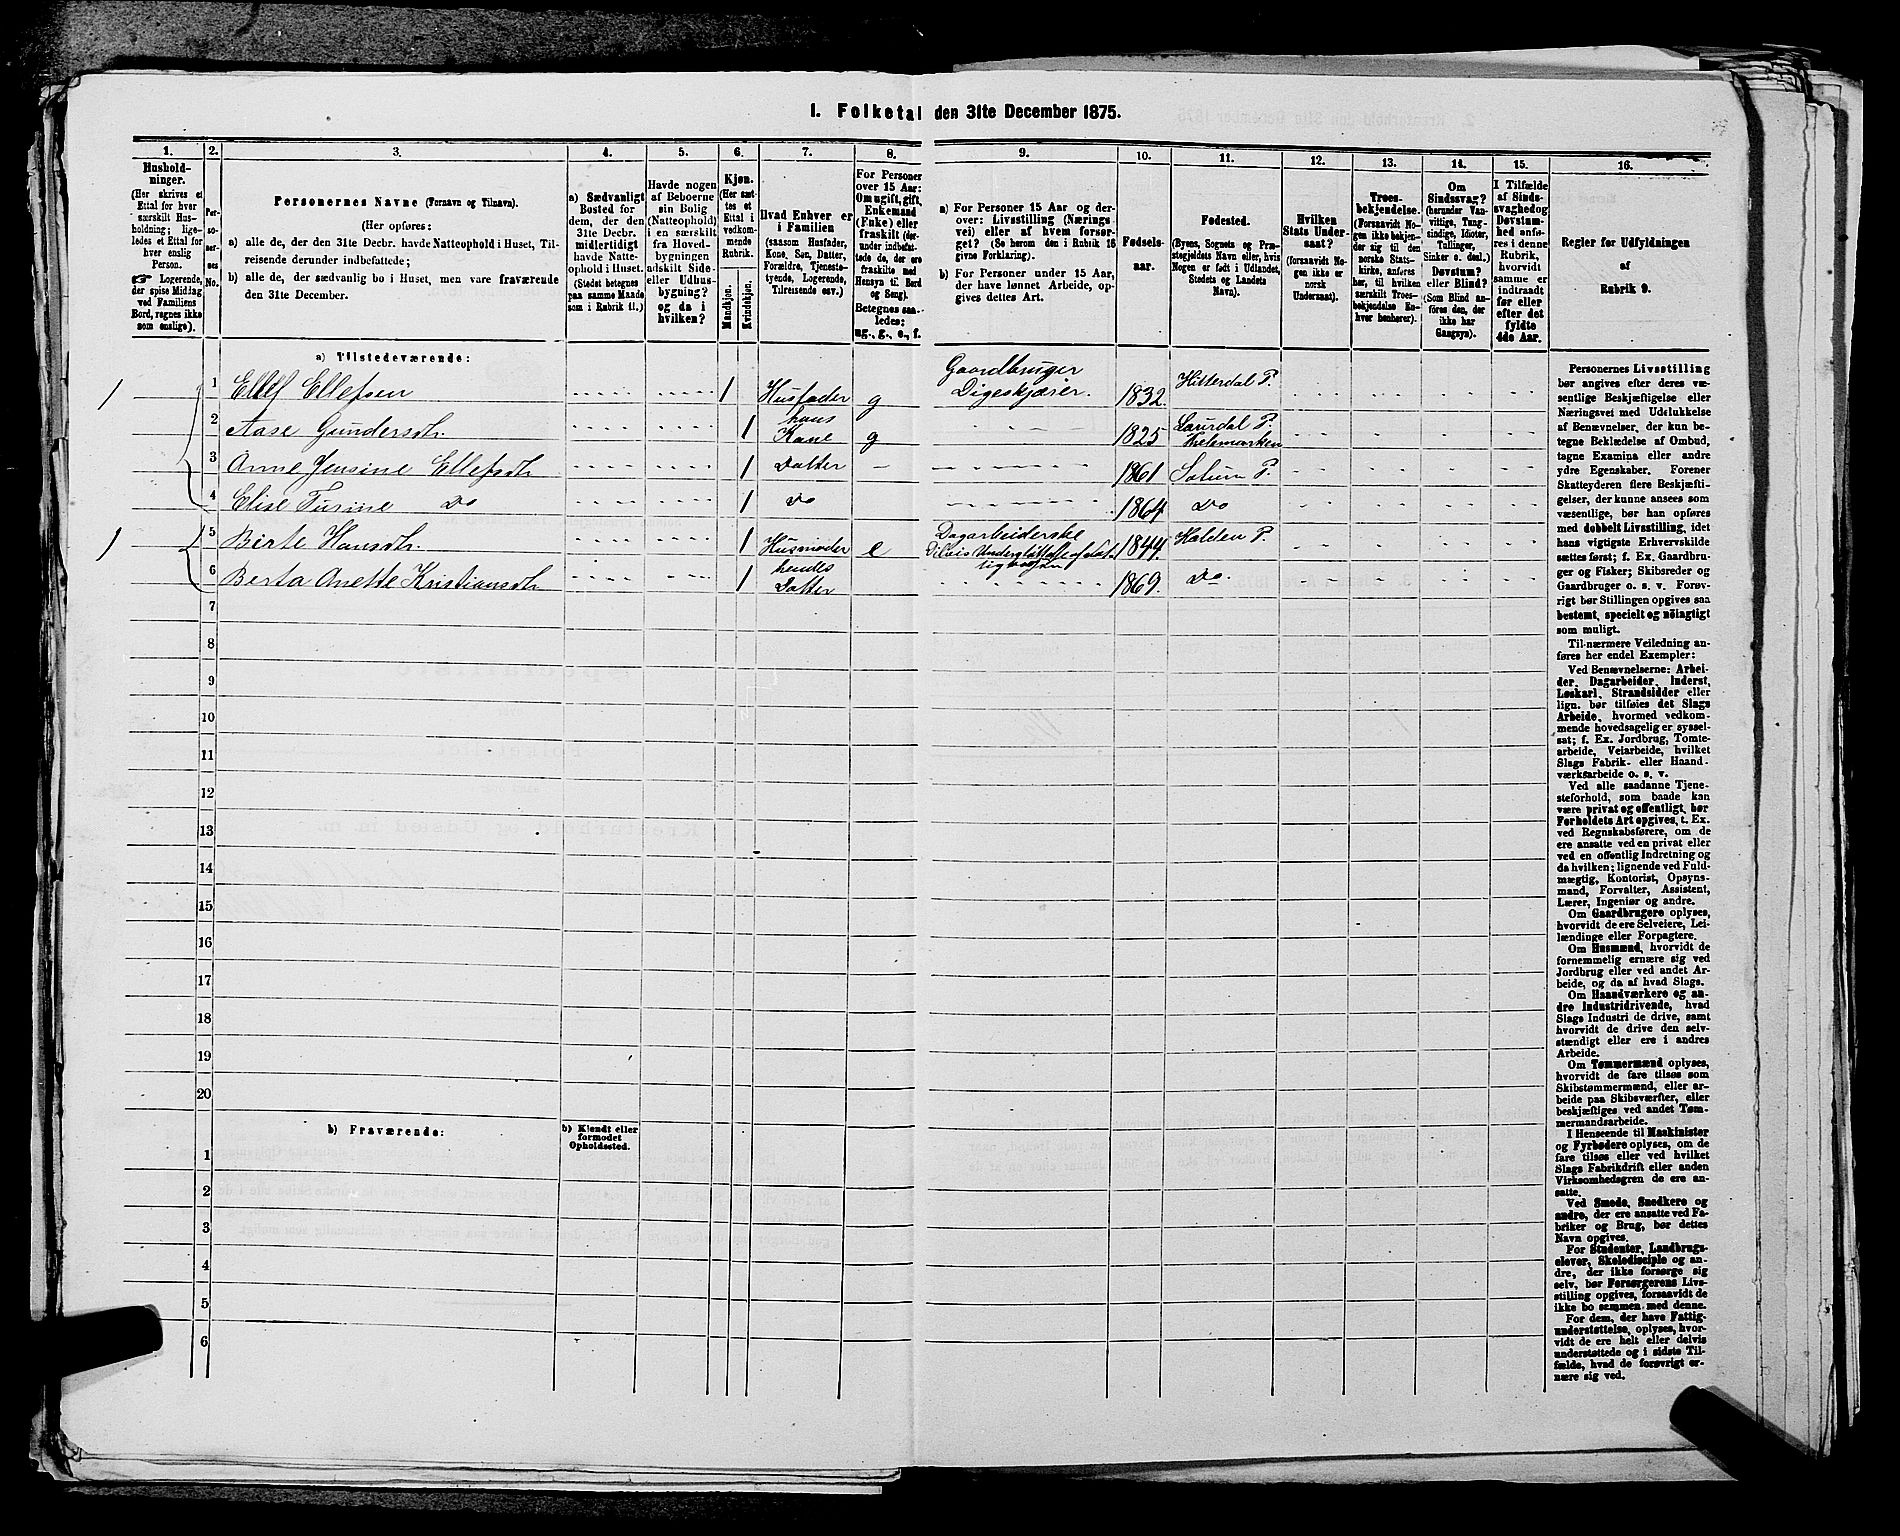 1. Folketal den 31te December 1875.
1. 2. 3. 4. 5. 6. 7. 8. 9. 10. 11. 12. 13. 14. 15. 16.
Husholdninger.
(Her skrives et
Ettal for hver
særskilt Husholdning;
ligeledes et Ettal for
hver enslig
Person.
☞ Logerende,
der spise Middag
ved Familiens
Bord, regnes ikke
som enslige).
Personernes No.
Personernes Navne (Fornavn og Tilnavn).
(Her opføres:
a) alle de, der den 31te Decbr. havde Natteophold i Huset, Tilreisende derunder indbefattede;
b) alle de, der sædvanlig bo i Huset, men vare fraværende
den 31te December.
a) Sædvanligt
Bosted for
dem, der den
31te Decbr.
midlertidigt
havde Natteophold i Huset.
(Stedet betegnes
paa samme Maade
som i Rubrik 11.)
Havde nogen
af Beboerne
sin Bolig
(Natteophold)
i en særskilt
fra Hovedbygningen
adskilt Side- eller Udhusbygning?
og da i
hvilken?
Kjøn.
(Her sættes et
Ettal i
vedkommende
Rubrik.
Mandkjøn.
Kvindekjøn.
Hvad Enhver er
i Familien
(saasom Husfader,
Kone, Søn, Datter,
Forældre, Tjenestetyende, Logerende,
Tilreisende osv.)
For Personer
over 15 Aar:
Om ugift, gift,
Enkemand
(Enke) eller
fraskilt (derunder indbefattede de, der
ere fraskilte med
Hensyn til Bord
og Seng).
Betegnes saaledes:
ug., g., e., f.
a) For Personer 15 Aar og derover: Livsstilling (Næringsvei) eller af hvem forsørget? (Se herom den i Rubrik 16
givne Forklaring).
b) For Personer under 15 Aar,
der have lønnet Arbeide, opgives dettes Art.
Fødselsaar.
Fødested.
(Byens, Sognets og Præstegjeldets Navn eller, hvis
Nogen er født i Udlandet,
Stedets og Landets
Navn).
Hvilken
Stats Undersaat?
(forsaavidt Nogen ikke er
norsk
Undersaat).
Troesbekjendelse.
(Forsaavidt Nogen ikke bekjender sig til den
norske Statskirke, anføres
her, til hvilken
særskilt Troesbekjendelse Enhver henhører).
Om
Sindssvag?
(herunder Vanvittige, Tungsindige, Idioter,
Tullinger,
Sinker o. desl.)
Døvstum?
eller Blind?
(Som Blind anføres den, der
ikke har
Gangsyn).
I Tilfælde
af Sindssvaghed og
Døvstumhed anføres i denne
Rubrik,
hvorvidt
samme er
indtraadt
før eller
efter det
fyldte
4de Aar.
Regler for Udfyldningen
af
Rubrik 9.
a) Tilstedeværende:
1 1 Ellef Ellefsen 1 Husfader g Gaardbruger Digeskjærer. 1832. Hitterdal P.
2 Aase Gundersdtr. 1 hans Kone g 1825 Laurdal P. Thelemarken
3 Anne Jensine Ellefsdtr 1 Datter 1861 Solum P.
4 Elise Tusine Do 1 Do 1864 Do
1 5 Birte Hansdtr. 1 Husmoder e Dagarbeiderske 1844. Holden P.
6 Berta Anette Kristiansdtr 1 hendes Datter 1869. Do
7
8
9
10
11
12
13
14
15
16
17
18
19
20
b) Fraværende:
b) Kjendt eller
formodet
Opholdssted.
1
2
3
4
5
6
Personernes Livsstilling
bør angives efter deres væsentlige Beskjæftigelse eller
Næringsvei med Udelukkelse
af Benævnelser, der kun betegne Beklædelse af Ombud,
tagne Examina eller andre
ydre Egenskaber. Forener
Skatteyderen flere Beskjæftigelser, der kunne ansees som
væsentlige, bør han opføres
med dobbelt Livsstilling, idet
hans vigtigste Erhvervskilde
sættes først; f. Ex. Gaardbruger og Fisker; Skibsreder og
Gaardbruger o. s. v. Forøvrigt bør Stillingen opgives saa
bestemt, specielt og nöiagtigt
som muligt.
Til nærmere Veiledning anføres her endel Exempler:
Ved Benævnelserne: Arbeider, Dagarbeider, Inderst,
Løskarl, Strandsidder eller
lign. bør tilføies det Slags
Arbeide, hvormed vedkommende hovedsagelig er sysselsat; f. Ex. Jordbrug, Tomtearbeide, Veiarbeide, hvilket
Slags Fabrik- eller Haandværksarbeide o. s. v.
Ved alle saadanne Tjenesteforhold, som baade kan
være privat og offentligt, bør
Forholdets Art opgives, t. Ex.
ved Regnskabsførere, om de
ere ansatte ved en privat eller
ved en offentlig Indretning og
da hvilken; lignende ved Fuldmægtig, Kontorist, Opsynsmand, Forvalter, Assistent,
Lærer, Ingeniør og andre.
Om Gaardbrugere oplyses,
hvorvidt de ere Selveiere, Leilændinge eller Forpagtere.
Om Husmænd, hvorvidt de
fornemmelig ernære sig ved
Jordbrug eller ved andet Arbeide, og da af hvad Slags.
Om Haandværkere og andre Industridrivende, hvad
Slags Industri de drive, samt
hvorvidt de drive den selvstændigt eller ere i andres
Arbeide.
Om Tømmermænd oplyses,
hvorvidt de fare tilsøs som
Skibstømmermænd, eller arbeide paa Skibsværfter, eller
beskjæftiges ved andet Tømmermandsarbeide.
I Henseende til Maskinister
og Fyrbødere oplyses, om de
fare tilsøs eller ved hvilket
Slags Fabrikdrift eller anden
Virksomhedsgren de ere ansatte.
Ved Smede, Snedkere og
andre, der ere ansatte ved Fabriker og Brug, bør dettes
Navn opgives.
For Studenter, Landbrugselever, Skoledisciple og andre, der ikke forsørge sig
selv, bør Forsørgerens Livsstilling opgives, forsaavidt de
ikke bo sammen med denne.
For dem, der have Fattigunderstøttelse, oplyses, hvorvidt de ere helt eller delvis
understøttede og i sidste Tilfælde, hvad de forøvrigt ernære sig ved.